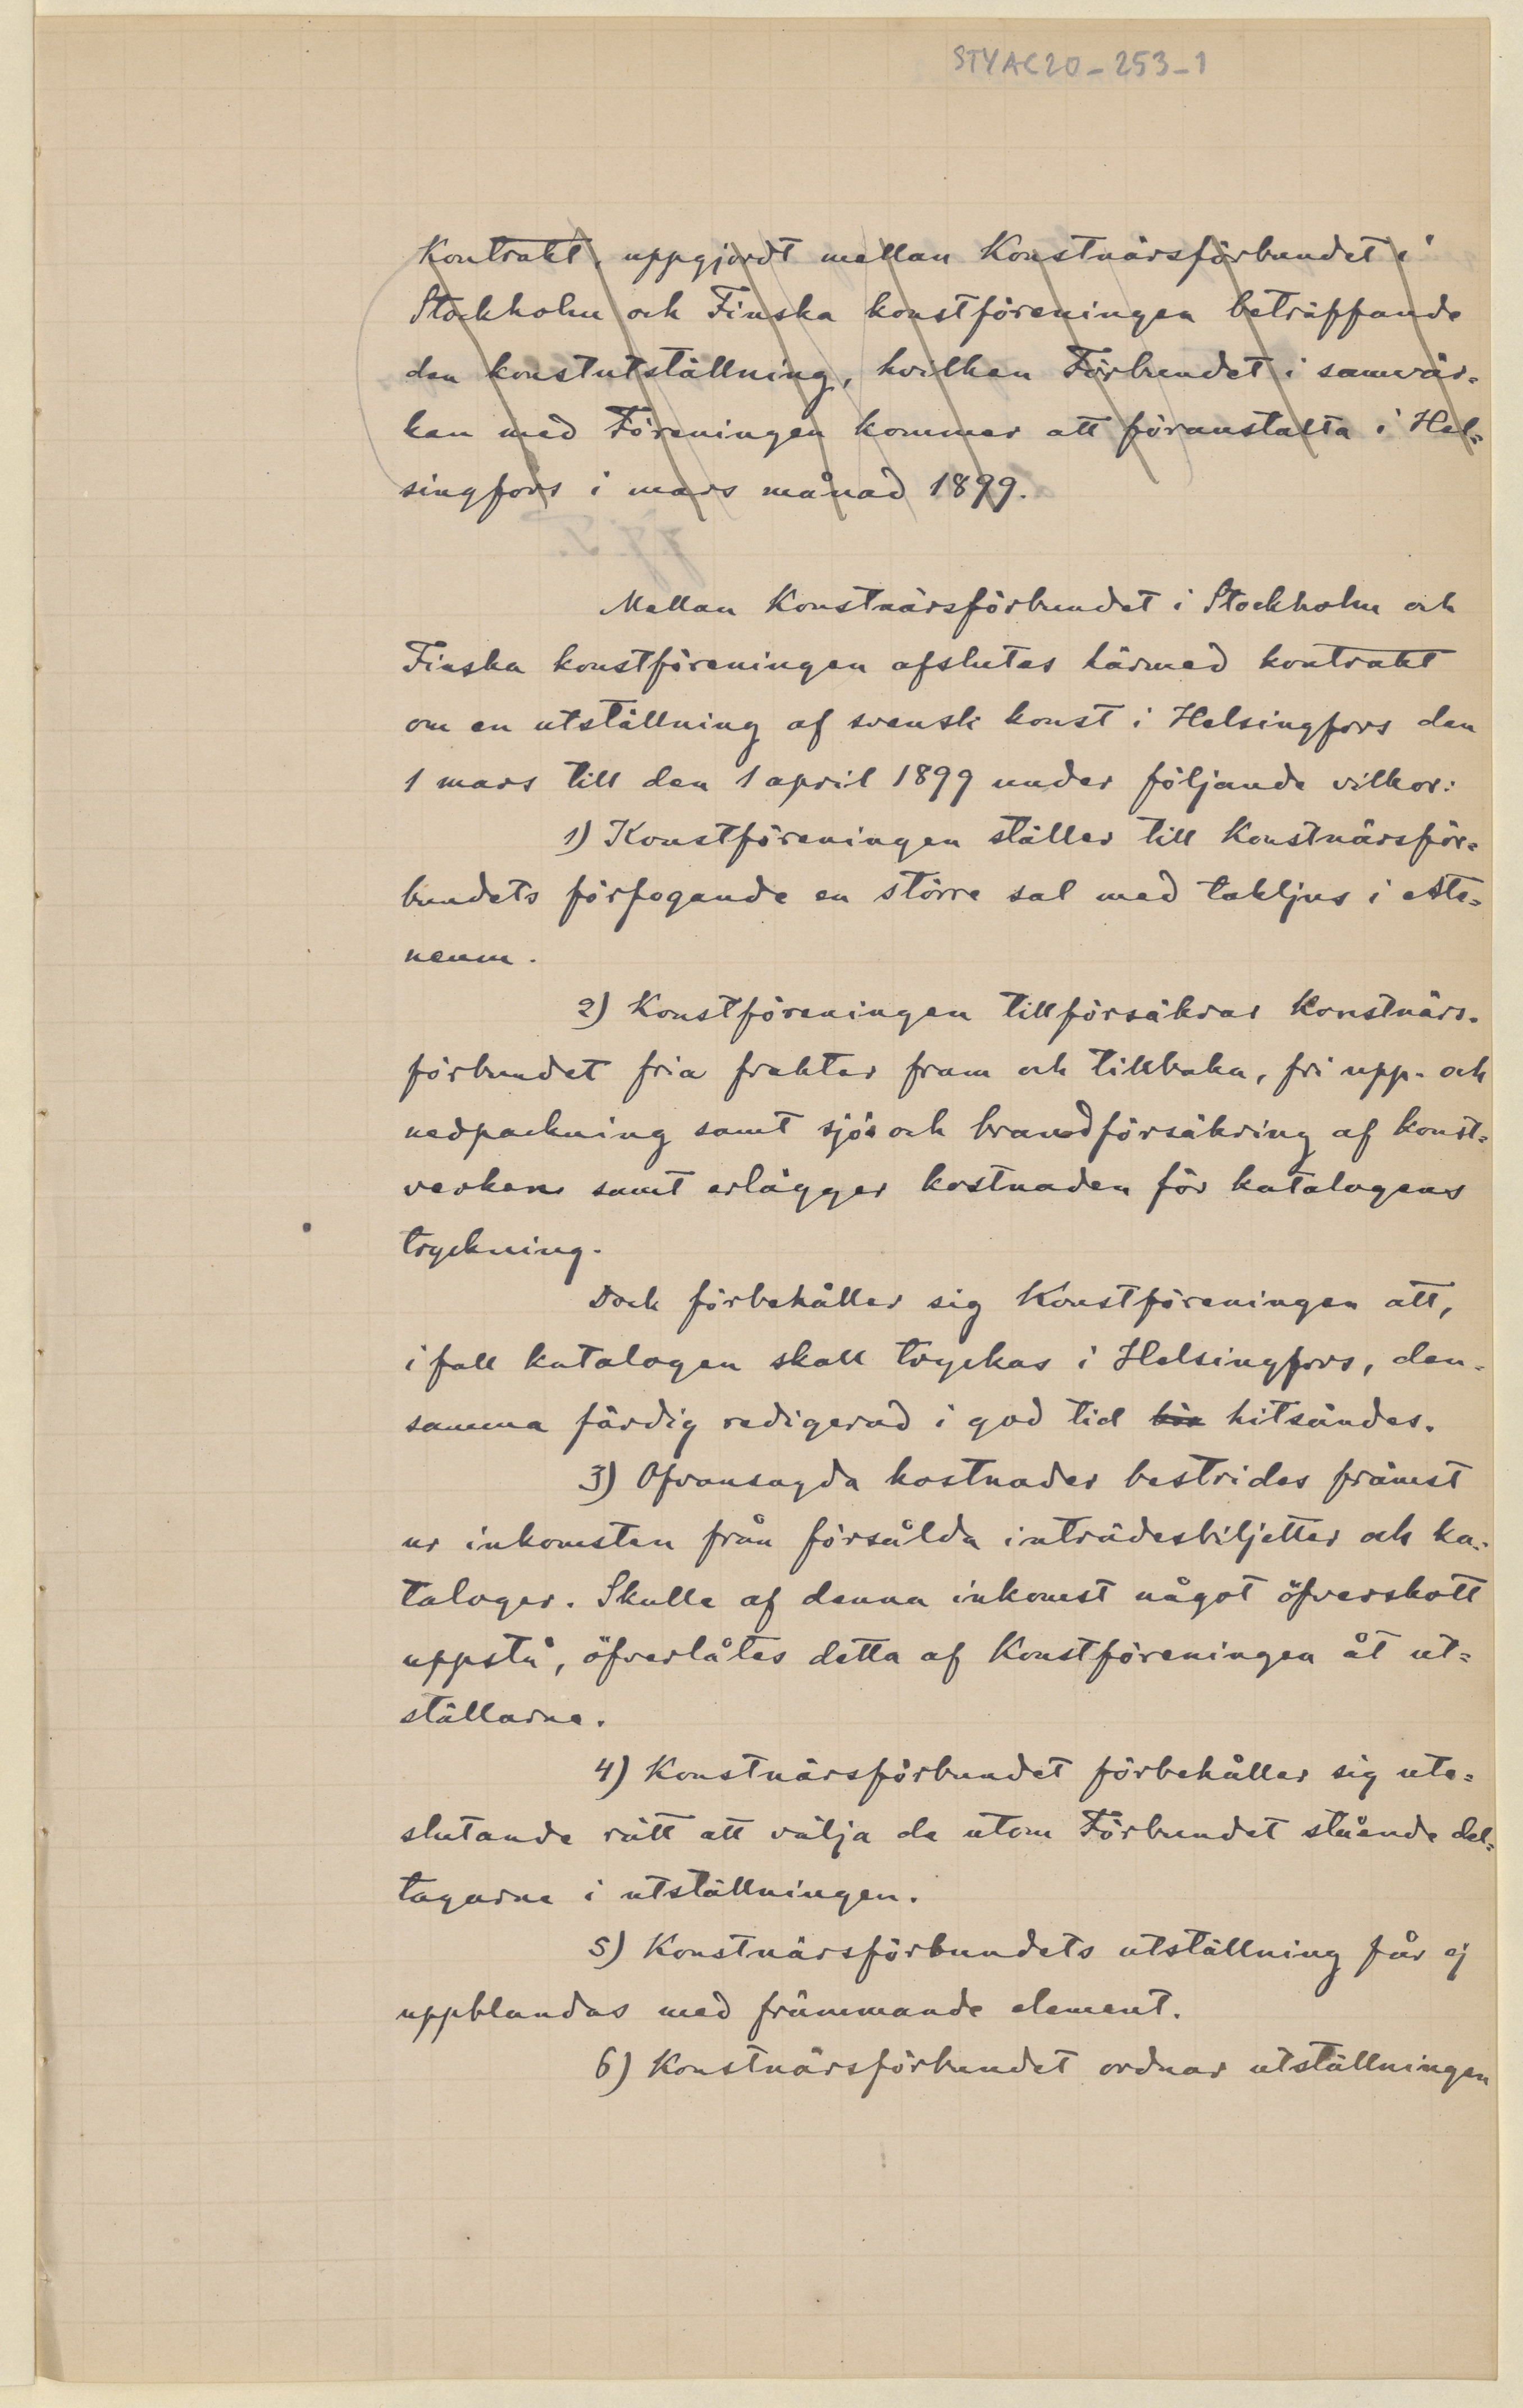 STYAC20-253-1
Kontrakt, uppgjordt mellan Konstnärsförbundet i
Stockholm och Finska konstföreningen beträffande
den konstutställning, hvilken Förbundet i samvär=
kan med Föreningen kommer att föranstalta i Hel=
singfors i mars månad 1899.
Mellan Konstnärsförbundet i Stockholm och
Finska konstföreningen afslutas härmed kontrakt
om en utställning af svensk konst i Helsingfors den
1 mars till den 1 april 1899 under följande vilkor:
1) Konstföreningen ställer till Konstnärsför=
bundets förfogande en större sal med takljus i Ate=
neum.
2) Konstföreningen tillförsäkrar Konstnärs-
förbundet fria frakter fram och tillbaka, fri upp- och
nedpackning samt sjö- och brandförsäkring af konst=
verken samt erlägger kostnaden för katalogens
tryckning.
Dock förbehåller sig Konstföreningen att,
i fall katalogen skall tryckas i Helsingfors, den-
samma färdig redigerad i god tid hitsändes.
3) Ofvansagda kostnader bestrides främst
ur inkomsten från försålda inträdesbiljetter och ka-
taloger. Skulle af denna inkomst något öfverskott
uppstå, öfverlåtes detta af Konstföreningen åt ut=
ställarne.
4) Konstnärsförbundet förbehåller sig ute=
slutande rätt att välja de utom Förbundet stående del=
tagarne i utställningen.
5) Konstnärsförbundets utställning får ej
uppblandas med främmande element.
6) Konstnärsförbundet ordnar utställningen